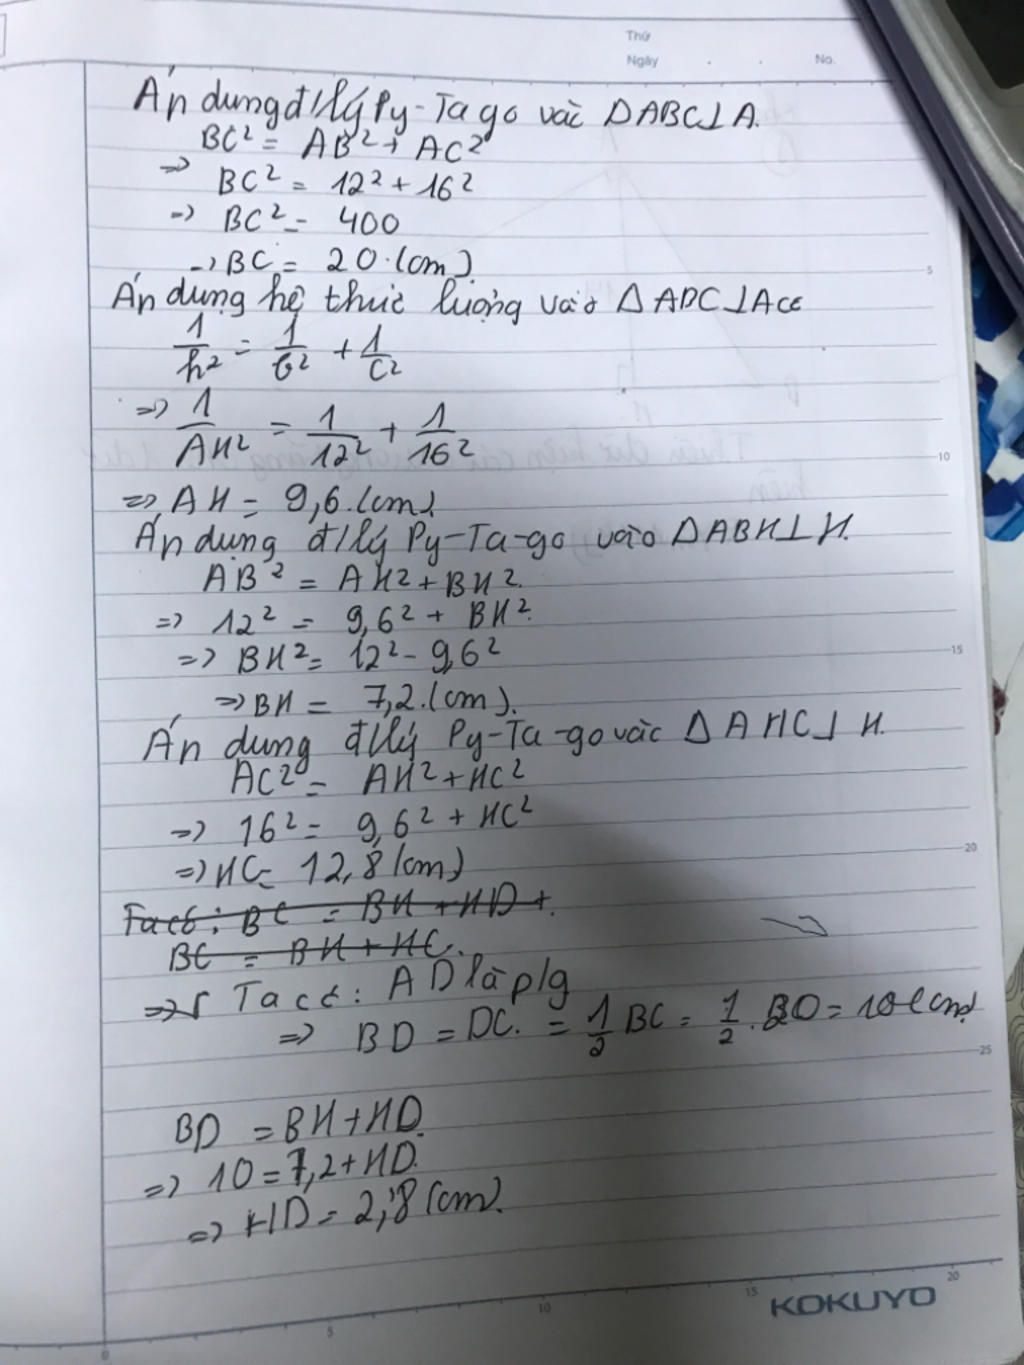 Thứ
Ngày . . No.
Áp dụng đ/lý Py-Ta go vào ΔABC⊥A.
BC² = AB² + AC²
=> BC² = 12² + 16²
=> BC² = 400
=> BC = 20 (cm)
Áp dụng hệ thức lượng vào ΔABC⊥A có
1/h² = 1/b² + 1/c²
=> 1/AH² = 1/12² + 1/16²
=> AH = 9,6 (cm)
Áp dụng đ/lý Py-Ta-go vào ΔABH⊥H.
AB² = AH² + BH².
=> 12² = 9,6² + BH²
=> BH² = 12² - 9,6²
=> BH = 7,2 (cm).
Áp dụng đ/lý Py-Ta-go vào ΔAHC⊥H.
AC² = AH² + HC²
=> 16² = 9,6² + HC²
=> HC = 12,8 (cm)
Ta có: BC = BH + HD +.
BC = BH + HC.
=> Ta có: AD là p/g
=> BD = DC. = 1/2 BC = 1/2 . 20 = 10 (cm)
BD = BH + HD.
=> 10 = 7,2 + HD.
=> HD = 2,8 (cm).
5
10
15
20
25
0 5 10 15 20
KOKUYO